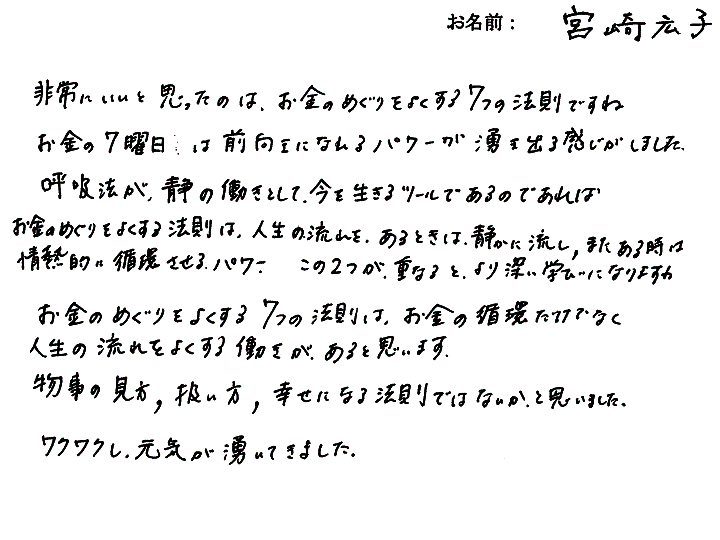 お名前： 宮崎広子
非常にいいと思ったのは、お金のめぐりをよくする7つの法則ですね
お金の7曜日は前向きになれるパワーが湧き出る感じがしました。
呼吸法が、静の働きとして、今を生きるツールであるのであれば
お金のめぐりをよくする法則は、人生の流れを、あるときは、静かに流し、またある時は
情熱的に循環させるパワー この2つが、重なると、より深い学びになりますね
お金のめぐりをよくする7つの法則は、お金の循環だけでなく
人生の流れをよくする働きが、あると思います。
物事の見方，扱い方，幸せになる法則ではないか、と思いました。
ワクワクし、元気が湧いてきました。